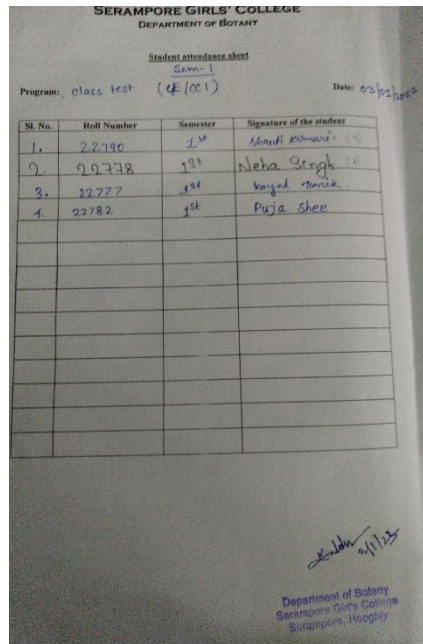 SERAMPORE GIRLS' COLLEGE
DEPARTMENT OF BOTANY
Student attendance sheet
Sem-I
Program: class test (CC1) Date: 03/01/2022
Sl. No. Roll Number Semester Signature of the student
1. 22790 1st Kumari
2. 22778 1st Neha Singh
3. 22777 1st
4. 22782 1st Puja Shee
3/1/23
Department of Botany
Serampore Girl's College
Serampore, Hooghly